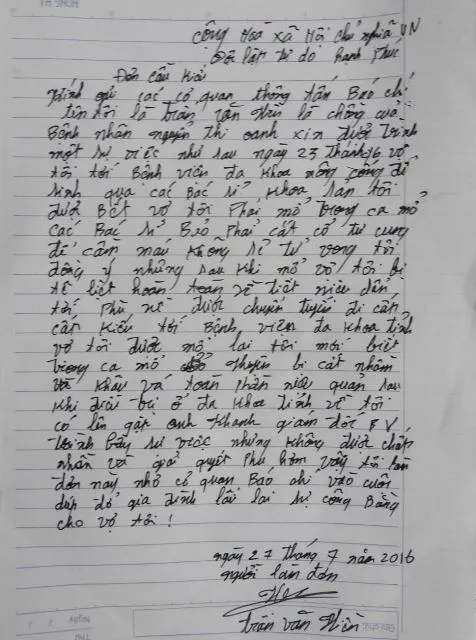 cộng Hoà xã Hội chủ nghĩa VN
Độc lập tự do hạnh Phúc
Đơn cầu Kiếu
Kính gửi các cơ quan thông tấn Báo chí
tên tôi là trần văn Hiền là chồng của
Bệnh nhân nguyễn thị oanh xin được trình
một sự việc như sau ngày 23 tháng 6 vợ
tôi tới Bệnh viện đa Khoa nông cống để
sinh qua các Bác sĩ Khoa sản tôi
được Biết vợ tôi Phải mổ trong ca mổ
các Bác sĩ Bảo Phải cắt cổ tử cung
để cầm máu Không sẽ tử vong tôi
đồng ý nhưng sau khi mổ vợ tôi bị
tê liệt hoàn toàn về tiết niệu dẫn
tới Phù nề được chuyển tuyến đi cấp
cấp Kiếu tới Bệnh viện đa Khoa tỉnh
vợ tôi được mổ lại tôi mới biết
trong ca mổ bị cắt nhầm
và Khâu và toàn Phần niệu quản sau
Khi điều trị ở đa Khoa tỉnh về tôi
có lên gặp anh Khanh giám đốc BV
trình bầy sự việc nhưng Không được chấp
nhận và giải quyết Phù hợp vậy tôi làm
đơn này nhờ cơ quan Báo chí vào cuộc
giúp đỡ gia đình lấy lại sự công Bằng
cho vợ tôi !
ngày 27 tháng 7 năm 2016
người làm đơn
trần văn Hiền
Ngày